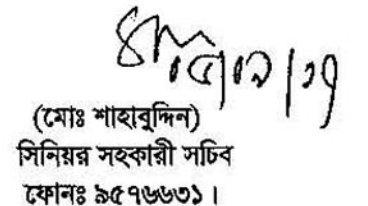 (মোঃ শাহাবুদ্দিন)
সিনিয়র সহকারী সচিব
ফোনঃ ৯৫৭৬৬৩১।